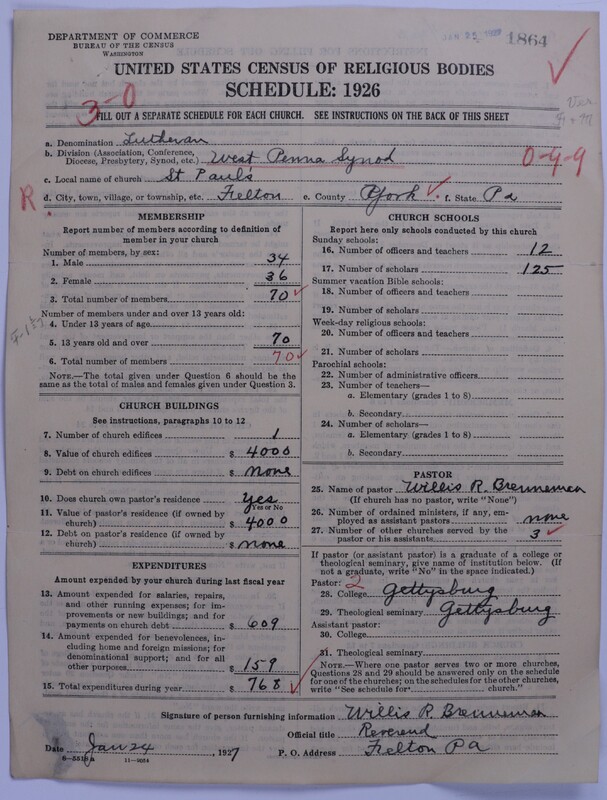 DEPARTMENT OF COMMERCE
BUREAU OF THE CENSUS
WASHINGTON
JAN 25 1927
1864
UNITED STATES CENSUS OF RELIGIOUS BODIES
SCHEDULE: 1926
3-0
FILL OUT A SEPARATE SCHEDULE FOR EACH CHURCH. SEE INSTRUCTIONS ON THE BACK OF THIS SHEET
a. Denomination Lutheran
b. Division (Association, Conference, Diocese, Presbytery, Synod, etc.) West Penna Synod
0-9-9
c. Local name of church St Paul's
R
d. City, town, village, or township, etc. Felton e. County York f. State Pa
MEMBERSHIP
Report number of members according to definition of
member in your church
Number of members, by sex:
1. Male 34
2. Female 36
3. Total number of members 70
Number of members under and over 13 years old:
4. Under 13 years of age
5. 13 years old and over 70
6. Total number of members 70
NOTE.—The total given under Question 6 should be the
same as the total of males and females given under Question 3.
CHURCH BUILDINGS
See instructions, paragraphs 10 to 12
7. Number of church edifices 1
8. Value of church edifices $ 4000
9. Debt on church edifices $ None
10. Does church own pastor's residence yes
Yes or No
11. Value of pastor's residence (if owned by
church) $ 4000
12. Debt on pastor's residence (if owned by
church) $ None
EXPENDITURES
Amount expended by your church during last fiscal year
13. Amount expended for salaries, repairs,
and other running expenses; for im-
provements or new buildings; and for
payments on church debt $ 609
14. Amount expended for benevolences, in-
cluding home and foreign missions; for
denominational support; and for all
other purposes $ 159
15. Total expenditures during year $ 768
CHURCH SCHOOLS
Report here only schools conducted by this church
Sunday schools:
16. Number of officers and teachers 12
17. Number of scholars 125
Summer vacation Bible schools:
18. Number of officers and teachers
19. Number of scholars
Week-day religious schools:
20. Number of officers and teachers
21. Number of scholars
Parochial schools:
22. Number of administrative officers
23. Number of teachers—
a. Elementary (grades 1 to 8)
b. Secondary
24. Number of scholars—
a. Elementary (grades 1 to 8)
b. Secondary
PASTOR
25. Name of pastor Willis R. Brenneman
(If church has no pastor, write "None")
26. Number of ordained ministers, if any, em-
ployed as assistant pastors none
27. Number of other churches served by the
pastor or his assistants 3
If pastor (or assistant pastor) is a graduate of a college or
theological seminary, give name of institution below. (If
not a graduate, write "No" in the space indicated.)
Pastor: 2
28. College Gettysburg
29. Theological seminary Gettysburg
Assistant pastor:
30. College
31. Theological seminary
NOTE.—Where one pastor serves two or more churches,
Questions 28 and 29 should be answered only on the schedule
for one of the churches; on the schedules for the other churches,
write "See schedule for church."
Signature of person furnishing information Willis R. Brenneman
Official title Reverend
Date Jan 24, 1927 P. O. Address Felton Pa
11-9034